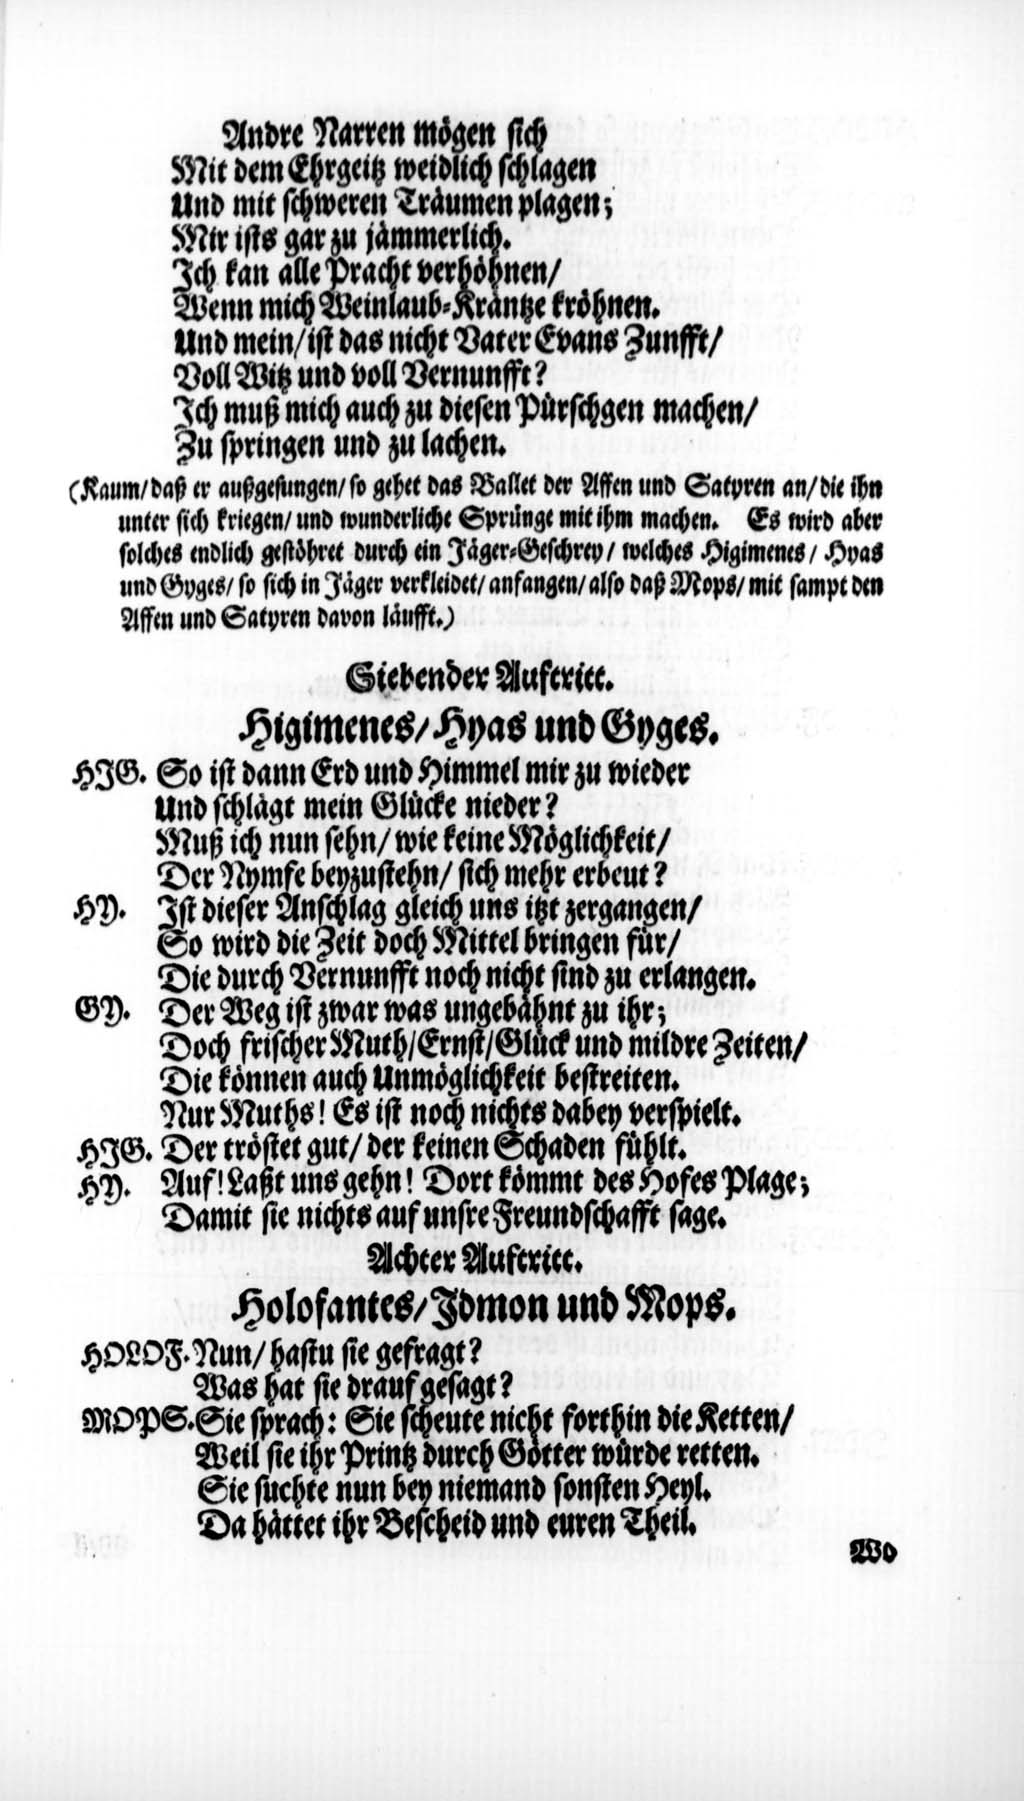 Andre Narren mögen sich
Mit dem Ehrgeitz weidlich schlagen
Und mit schweren Träumen plagen;
Mir ists gar zu jämmerlich.
Ich kan alle Pracht verhöhnen/
Wenn mich Weinlaub-Kräntze kröhnen.
Und mein/ ist das nicht Vater Evans Zunfft/
Voll Witz und voll Vernunfft?
Ich muß mich auch zu diesen Pürschgen machen/
Zu springen und zu lachen.
(Kaum/ daß er außgesungen/ so gehet das Ballet der Affen und Satyren an/ die ihn
unter sich kriegen/ und wunderliche Sprünge mit ihm machen. Es wird aber
solches endlich gestöhret durch ein Jäger-Geschrey/ welches Higimenes/ Hyas
und Gyges/ so sich in Jäger verkleidet/ anfangen/ also daß Mops/ mit sampt den
Affen und Satyren davon läufft.)
Siebender Auftritt.
Higimenes/ Hyas und Gyges.
HIG. So ist dann Erd und Himmel mir zu wieder
Und schlägt mein Glücke nieder?
Muß ich nun sehn/ wie keine Möglichkeit/
Der Nymfe beyzustehn/ sich mehr erbeut?
HY. Ist dieser Anschlag gleich uns itzt zergangen/
So wird die Zeit doch Mittel bringen für/
Die durch Vernunfft noch nicht sind zu erlangen.
GY. Der Weg ist zwar was ungebähnt zu ihr;
Doch frischer Muth/ Ernst/ Glück und mildre Zeiten/
Die können auch Unmöglichkeit bestreiten.
Nur Muths! Es ist noch nichts dabey verspielt.
HIG. Der tröstet gut/ der keinen Schaden fühlt.
HY. Auf! Laßt uns gehn! Dort kömmt des Hofes Plage;
Damit sie nichts auf unsre Freundschafft sage.
Achter Auftritt.
Holofantes/ Idmon und Mops.
HOLOF. Nun/ hastu sie gefragt?
Was hat sie drauf gesagt?
MOPS. Sie sprach: Sie scheute nicht forthin die Ketten/
Weil sie ihr Printz durch Götter würde retten.
Sie suchte nun bey niemand sonsten Heyl.
Da hättet ihr Bescheid und euren Theil.
Wo